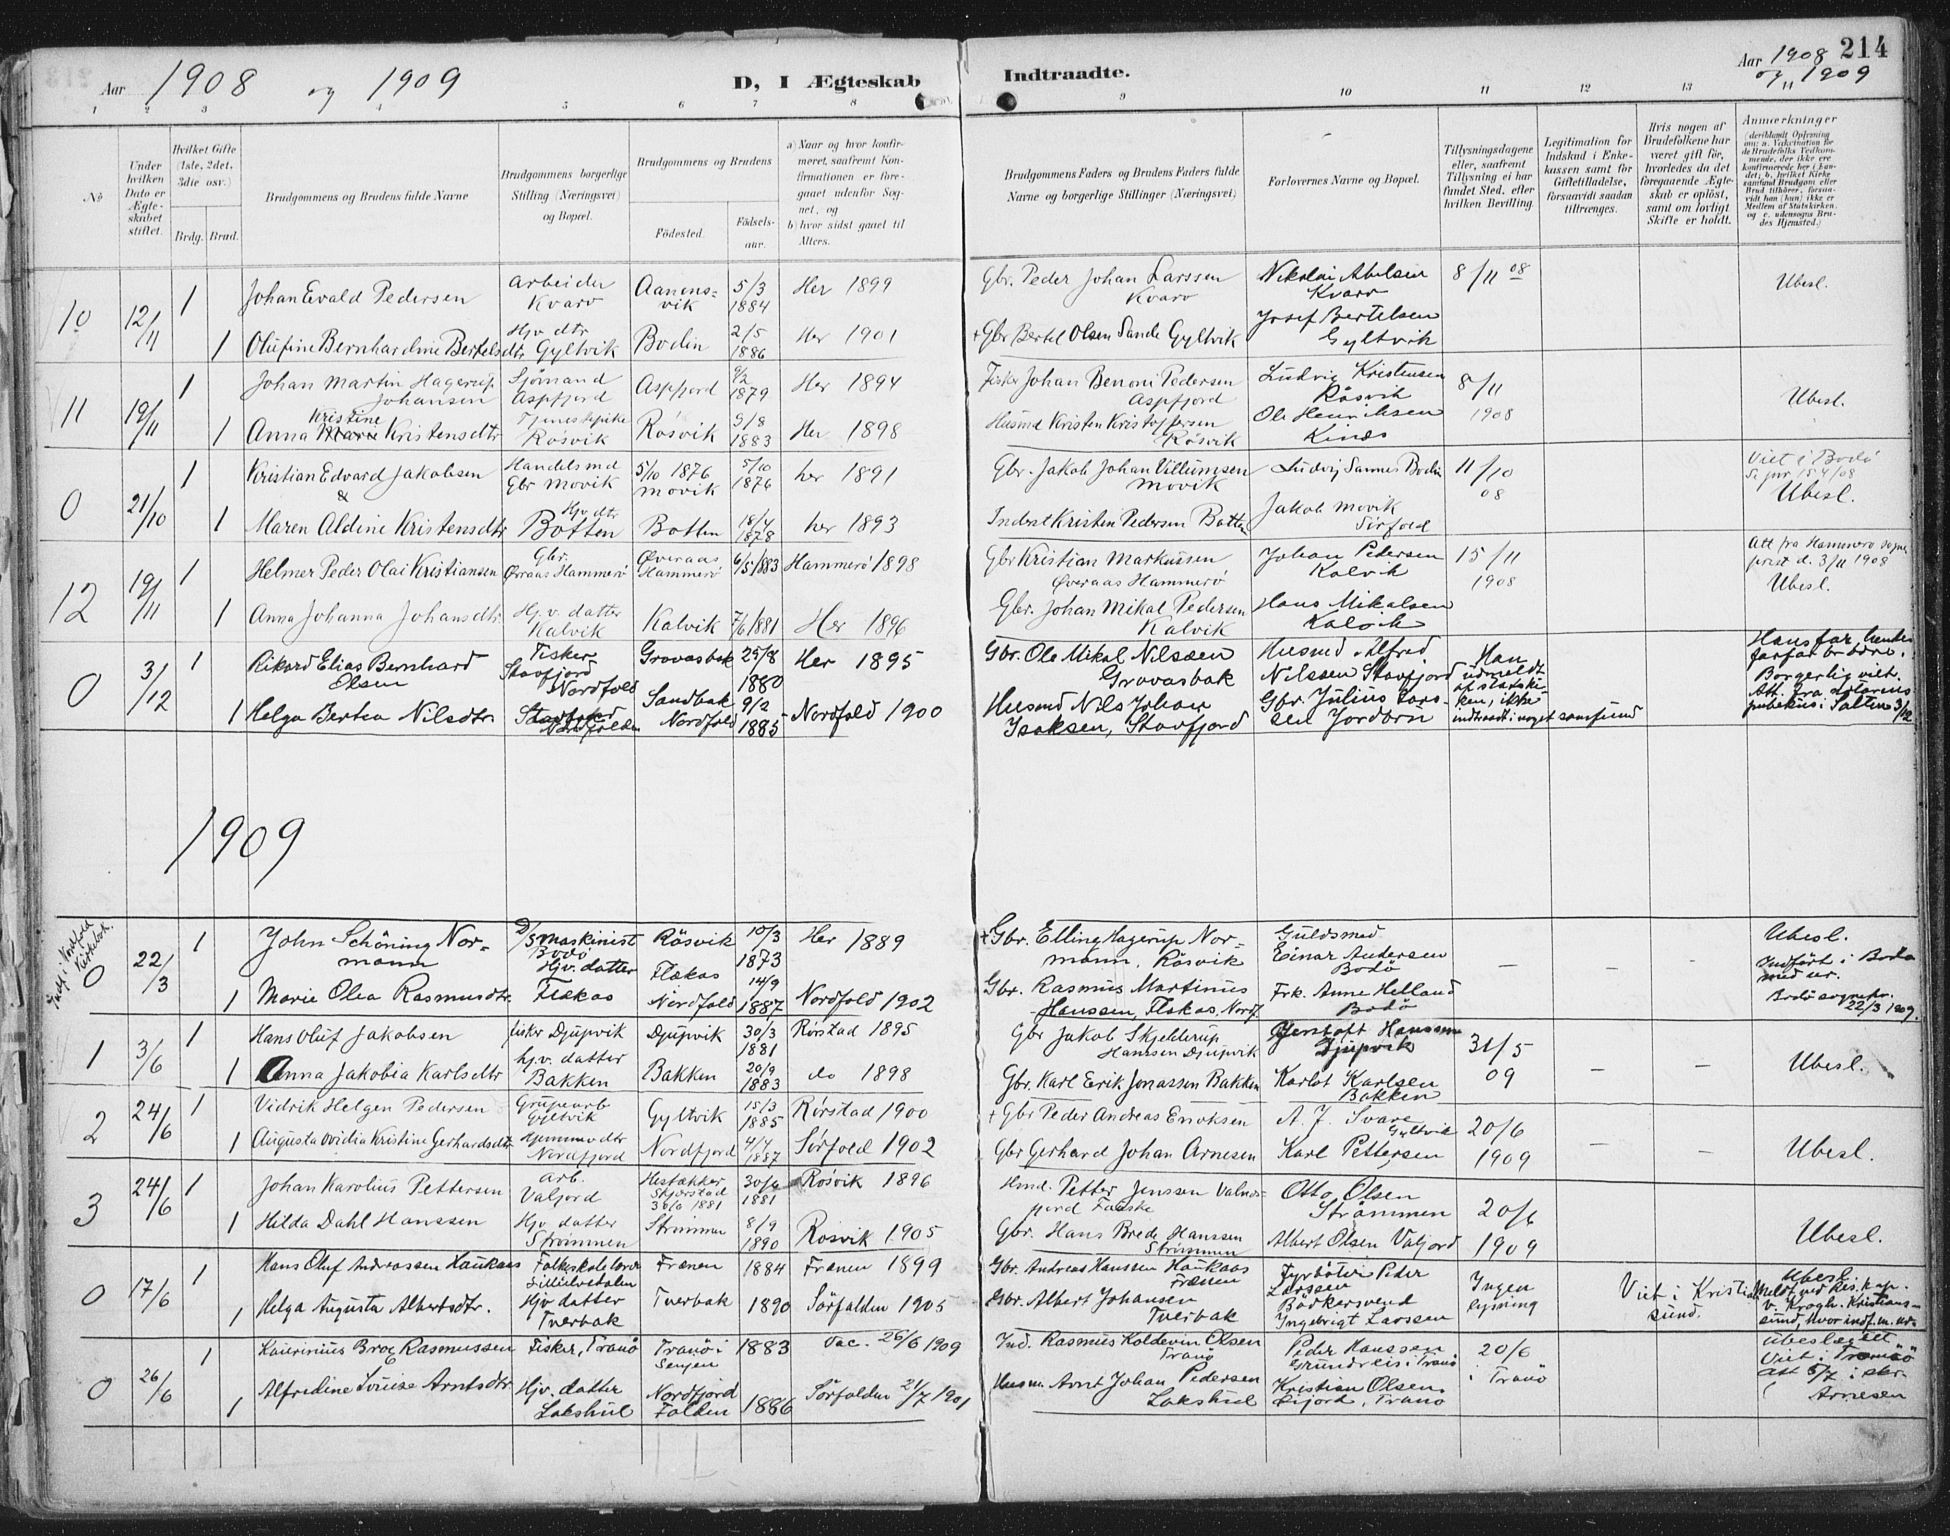 Aar 1908 og 1909
D, I Ægteskab Indtraadte.
Aar 1908 og 1909
214
1 2 3 4 5 6 7 8 9 10 11 12 13
No
Under hvilken Dato er Ægteskabet stiftet.
Hvilket Gifte (1ste, 2det, 3die osv.)
Brdg. Brud.
Brudgommens og Brudens fulde Navne
Brudgommens borgerlige Stilling (Næringsvei) og Bopæl.
Brudgommens og Brudens
Fødested. Fødselsaar.
a) Naar og hvor konfirmeret, saafremt Konfirmationen er foregaaet udenfor Sognet, og
b) hvor sidst gaaet til Alters.
Brudgommens Faders og Brudens Faders fulde Navne og borgerlige Stillinger (Næringsvei)
Forlovernes Navne og Bopæl.
Tillysningsdagene eller, saafremt Tillysning ei har fundet Sted, efter hvilken Bevilling.
Legitimation for Indskud i Enkekassen samt for Giftetilladelse, forsaavidt saadan tiltrænges.
Hvis nogen af Brudefolkene har været gift før, hvorledes da det foregaaende Ægteskab er opløst, samt om lovligt Skifte er holdt.
Anmærkninger
10 12/11 1 Johan Evald Pedersen arbeider Kvarv Aanensvik 5/3 1884 Her 1899 Gbr. Peder Johan Larssen Kvarv Nikolai Abelsen Kvarv 8/11 08 Ubesl.
1 Olufine Bernhardine Bertelsdtr Hjv. dtr Gyltvik Bodin 2/5 1886 Her 1901 + Gbr Bertel Olsen Sande Gyltvik Josef Bertelsen Gyltvik
11 19/11 1 Johan Martin Hagerup Johansen Sjømand Aspfjord Aspfjord 9/2 1879 Her 1894 Fisker Johan Benoni Pedersen Aspfjord Ludvig Kristensen Røsvik 8/11 1908 Ubesl.
1 Anna Kristine Kristensdtr Tjenestepike Røsvik Røsvik 9/8 1883 Her 1898 Husmd Kristen Kristoffersen Røsvik Ole Henriksen Kines
0 21/10 1 Kristian Edvard Jakobsen & Handelsmd Gbr Movik 5/10 1876 Movik 5/10 1876 her 1891 Gbr. Jakob Johan Villumsen Movik Ludvig Sannes Bodin 11/10 08 Viet i Bodø Ubesl.
1 Maren Aldine Kristensdtr Hjv. dtr Botten Botten 18/4 1878 her 1893 Inderst Kristen Pedersen Botten Jakob Movik Sørfold
12 19/11 1 Helmer Peder Olai Kristiansen Gbr. Øvraas Hammerø Øveraas Hammerø 6/5 1883 Hammerø 1898 Gbr Kristian Markussen Øveraas Hammerø Johan Pedersen Kalvik 15/11 1908 Att fra Hammerø sogneprest d. 3/11 1908 Ubesl.
1 Anna Johanna Johansdtr Hj. v. datter Kalvik Kalvik 7/6 1881 Her 1896 Gbr. Johan Mikal Pedersen Kalvik Hans Mikalsen Kalvik
0 3/12 1 Rikard Elias Bernhard Olsen Fisker Stavfjord Nordfold Grovasbak 25/8 1880 Her 1895 Gbr. Ole Mikal Nilssen Grovasbak Husmd Alfred Nilssen Stavfjord Han udmeldt af statskiken, ikke indtraadt i noget samfund Hans far, hendes farfar brødre. Borgerlig viet. Att. fra notarius publicus i Salten 3/12
1 Helga Bertea Nilsdtr Nordfolden Sandbak Nordfold 9/2 1885 Nordfold 1900 Husmd Nils Johan Isaksen, Stavfjord Gbr. Julius Larssen Jordbrn
1909
Indf. i Nordfold Kirkebok.
0 22/3 1 John Schöning Normann D/S Maskinist Bodø Røsvik 10/3 1873 Her 1889 + Gbr. Elling Hagerup Normann, Røsvik Guldsmed Einar Andersen Bodø – – – Ubesl. Indført i Bodø med nr. Bodø sognekr. 22/3 1909.
1 Marie Olea Rasmusdtr. Hjv. datter Flskas Flskas Nordfold 14/9 1887 Nordfold 1902 Gbr. Rasmus Martinus Hanssen, Flskas, Nordf. Frk. Anne Helland Bodø
1 3/6 1 Hans Oluf Jakobsen fisker Djupvik Djupvik 30/3 1881 Rørstad 1895 Gbr Jakob Skjelderup Hanssen Djupvik Gerstoft Hanssen Djupvik 31/5 09 – – Ubesl.
1 Anna Jakobia Karlsdtr hj.v. datter Bakken Bakken 20/9 1883 do 1898 Gbr. Karl Eerik Jonassen Bakken Karlot Karlsen Bakken
2 24/6 1 Vidrik Helgen Pedersen Grubearb Gyltvik Gyltvik 15/3 1885 Rørstad 1900 + Gbr Peder Andreas Enoksen A. J. Svare Gyltvik 20/6 1909 – – Ubesl.
1 Augusta Ovidia Kristine Gerhardsdtr Hjemmev dtr Nordfjord Nordfjord 4/7 1887 Sørfold 1902 Gbr Gerhard Johan Arnesen Karl Pettersen
3 24/6 1 Johan Karolius Pettersen arb. Valjord Hestækker Skjerstad 30/6 1881 30/6 1881 Røsvik 1896 Hmd. Petter Jenssen Valnesfjord Fauske Otto Olsen Strømmen 20/6 1909 Ubesl.
1 Hilda Dahl Hanssen Hjv datter Strømmen Strømmen 8/9 1890 Røsvik 1905 Gbr. Hans Brede Hanssen Strømmen Albert Olsen Valjord
0 17/6 1 Hans Oluf Andreassen Haukaas Folkeskolelærer Lillelvedalen Frænen 1884 Frænen 1899 Gbr. Andreas Hanssen Haukaas Frænen Fyrbøter Peder Larssen Ingen lysning Viet i Kristiansund. Ubesl. Meldt ved Res. kap. v. Krogh. Kristianssund, hvor indf. m. nr.
1 Helga Augusta Albertsdtr. Hjv datter Tverbak Tverbak 1890 Sørfolden 1905 Gbr. Albert Johansen Tverbak Bödkersvend Ingebrigt Larssen
0 26/6 1 Broe Rasmussen Fisker, Tranø Tranø i Senjen 1883 Vac. 26/6 1909 Ind. Rasmus Koldevin Olsen Tranø Peder Hanssen Grundreis i Tranø 20/6 i Tranö Ubeslægtet Viet i Tromsö Att 5/7 i skr. Arnesen
1 Alfredine Lovise Arntsdtr Hjv. datter Lakshul Nordfjord Folden 1886 Sörfolden 21/7 1901 Husm. Arnt Johan Pedersen Lakshul Kristian Olsen Eijord, Tranø